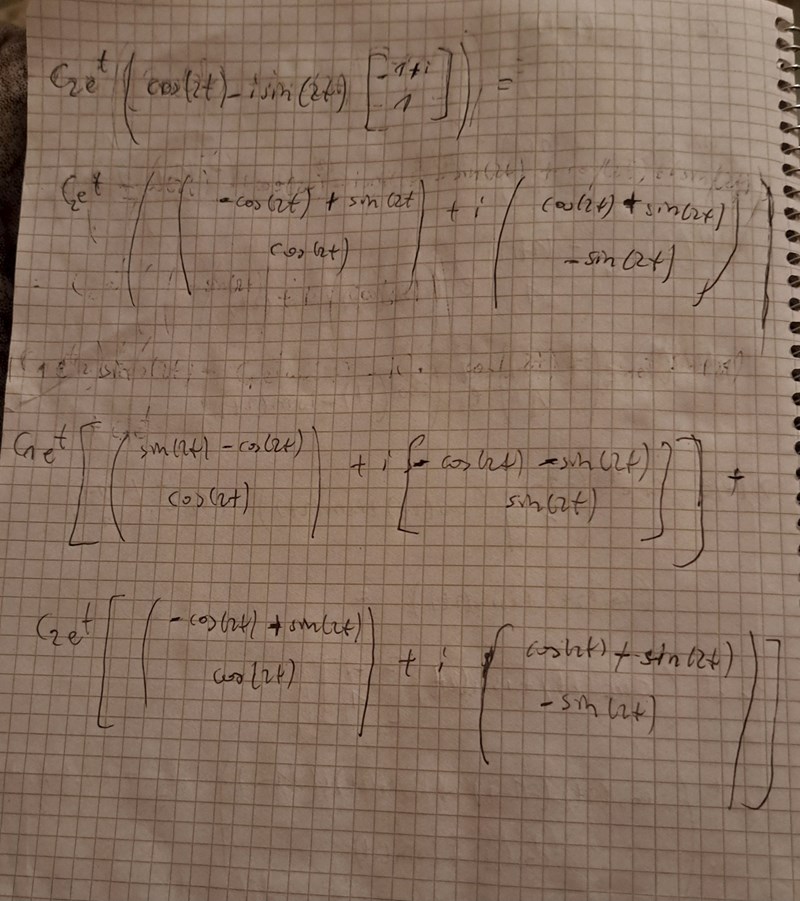 C₂eᵗ ( cos(2t) - i sin(2t) [ -1+i ] ) =
1
C₂eᵗ ( ( -cos(2t) + sin(2t ) + i ( cos(2t) + sin(2t) ) )
cos(2t) - sin(2t)
C₁eᵗ [ ( sin(2t) - cos(2t) ) + i [ - cos(2t) - sin(2t) ] ] +
cos(2t) sin(2t)
C₂eᵗ [ ( -cos(2t) + sin(2t) ) + i ( cos(2t) + sin(2t) ) ]
cos(2t) - sin(2t)